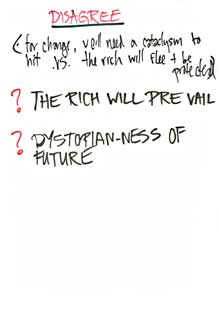 DISAGREE
for change, we'll need a cataclysm to
hit .vs. the rich will flee + be
protected
? THE RICH WILL PREVAIL
? DYSTOPIAN-NESS OF
FUTURE